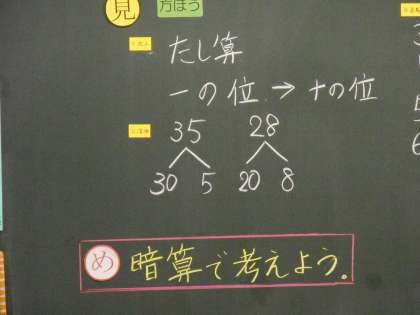 見 方ほう
たし算
一の位 → 十の位
35 28
30 5 20 8
め 暗算で考えよう。